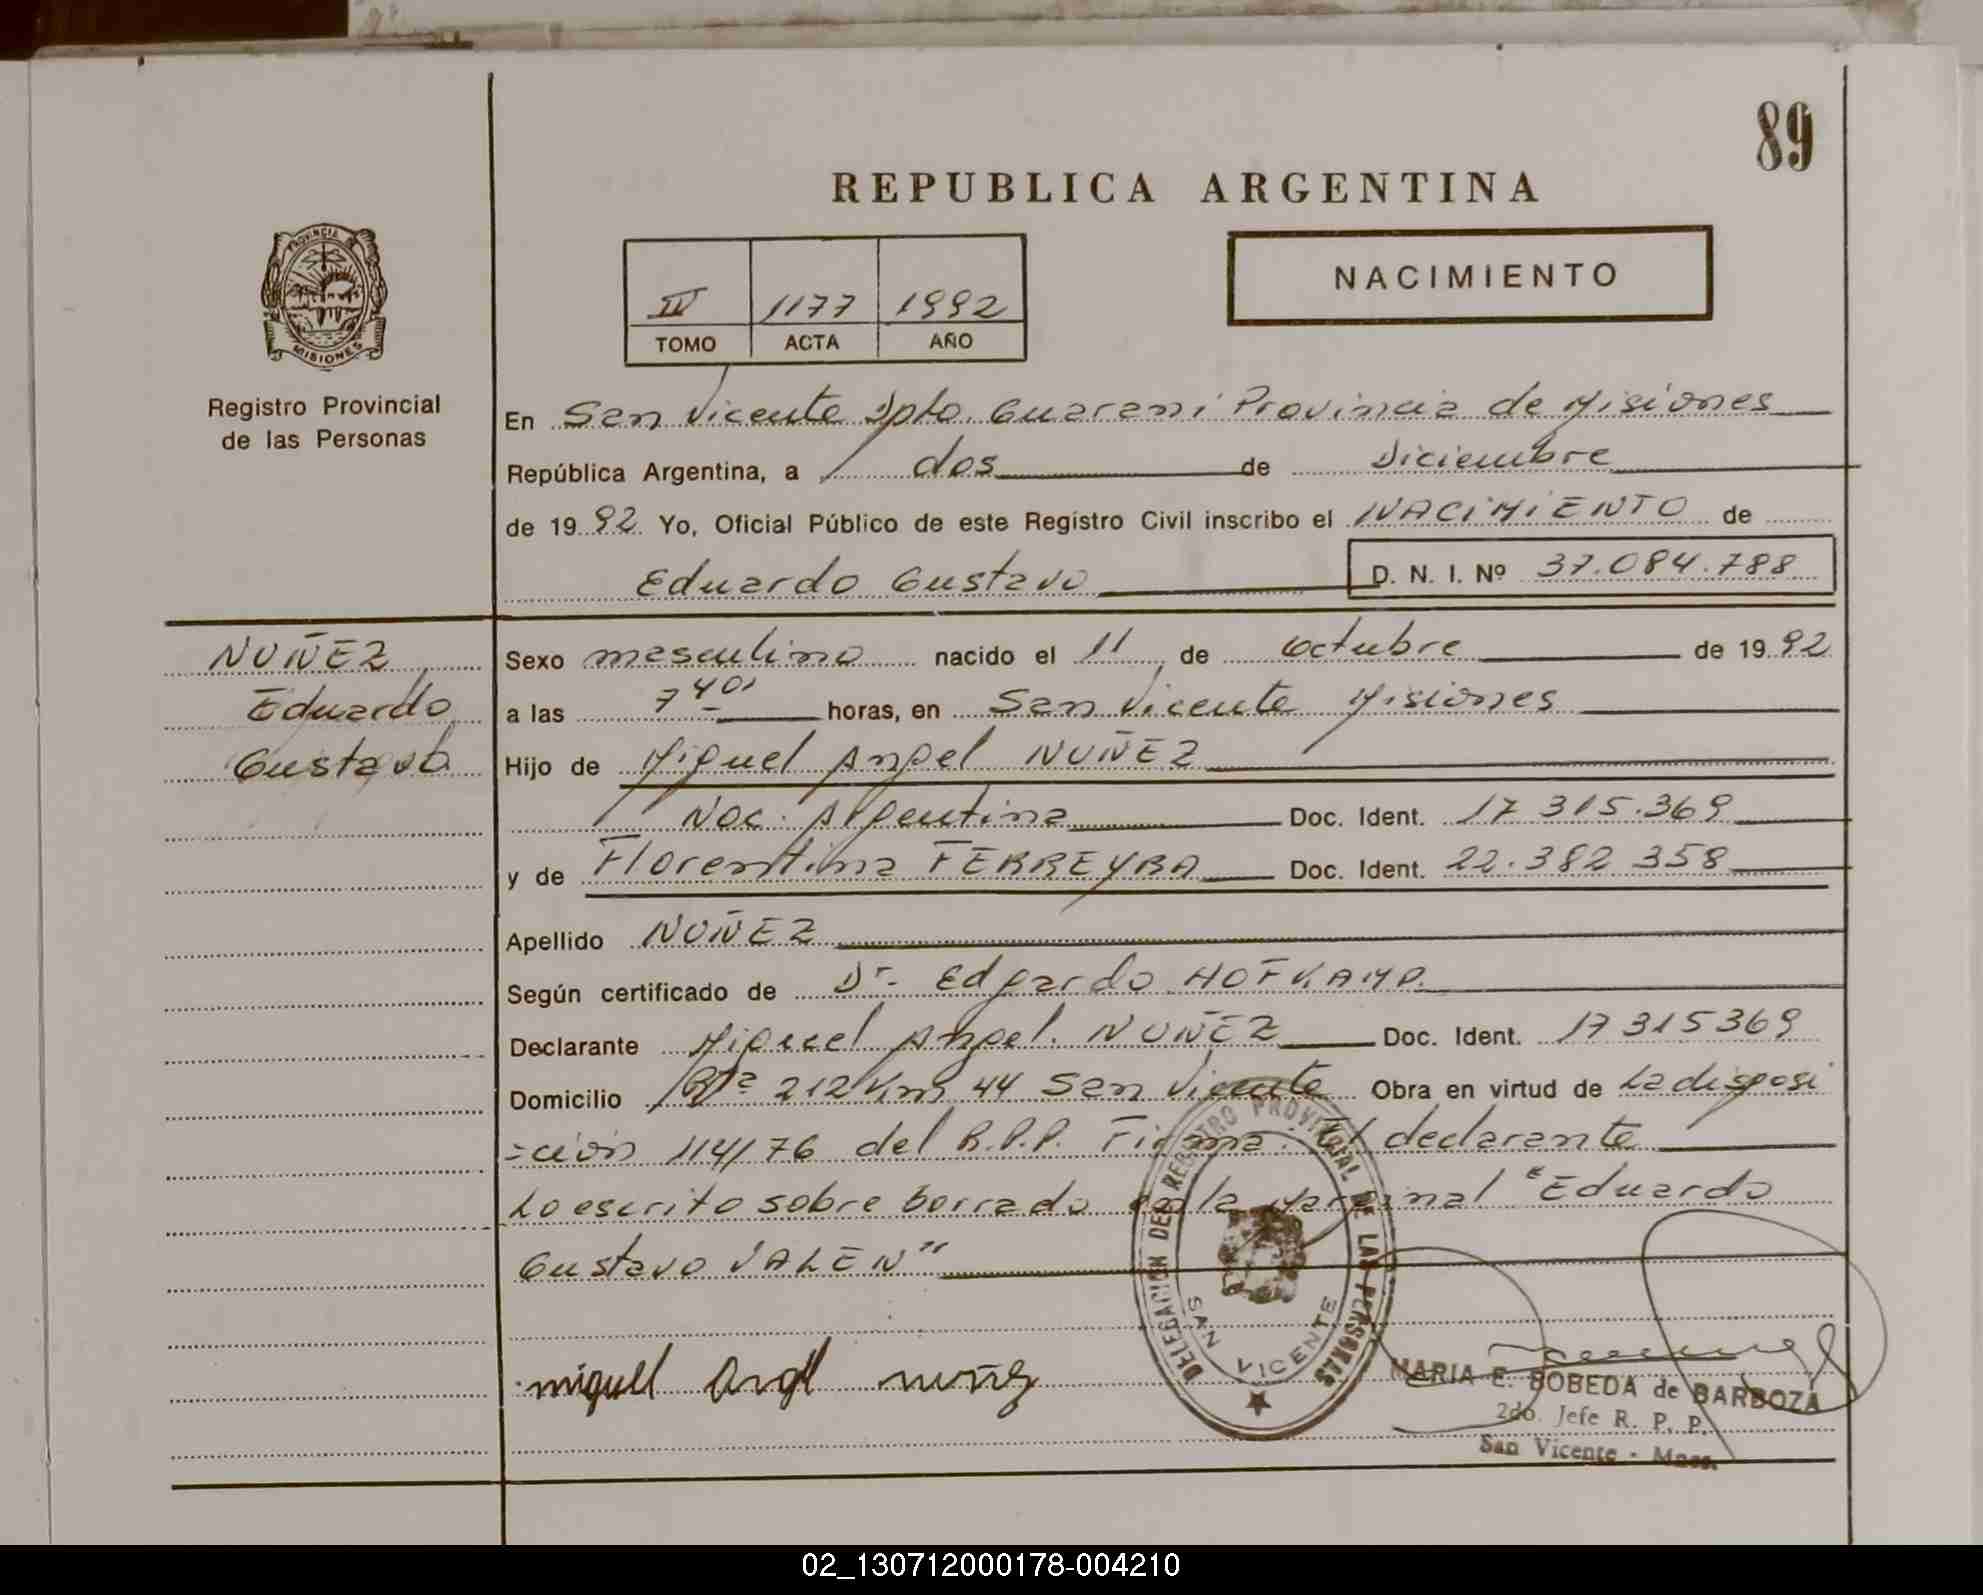 89
REPUBLICA ARGENTINA
PROVINCIA DE
MISIONES
IV 1177 1992
TOMO ACTA AÑO
NACIMIENTO
Registro Provincial
de las Personas
En San Vicente Dpto. Guaraní Provincia de Misiones
República Argentina, a dos de Diciembre
de 1992. Yo, Oficial Público de este Registro Civil inscribo el NACIMIENTO de
Eduardo Gustavo D. N. I. Nº 37.084.788
NUÑEZ
Eduardo
Gustavo
Sexo masculino nacido el 11 de octubre de 1992
a las 7 40 horas, en San Vicente Misiones
Hijo de Miguel Angel NUÑEZ
Nac. Argentina Doc. Ident. 17 315.369
y de Florentina FERREYRA Doc. Ident. 22.382 358
Apellido NUÑEZ
Según certificado de Dr. Edgardo HOFKAMP.
Declarante Miguel Angel. NUÑEZ Doc. Ident. 17 315369
Domicilio Rta 212 Km 44 San Vicente Obra en virtud de La disposi
=ción 114/76 del R.P.P. Firma. El declarante
Lo escrito sobre borrado en la marginal "Eduardo
Gustavo VALEN"
miguel Angel nuñez
DELEGACION DEL REGISTRO PROVINCIAL DE LAS PERSONAS
SAN VICENTE
MARIA E. BOBEDA de BARBOZA
2do. Jefe R. P. P.
San Vicente - Mnes.
02_130712000178-004210